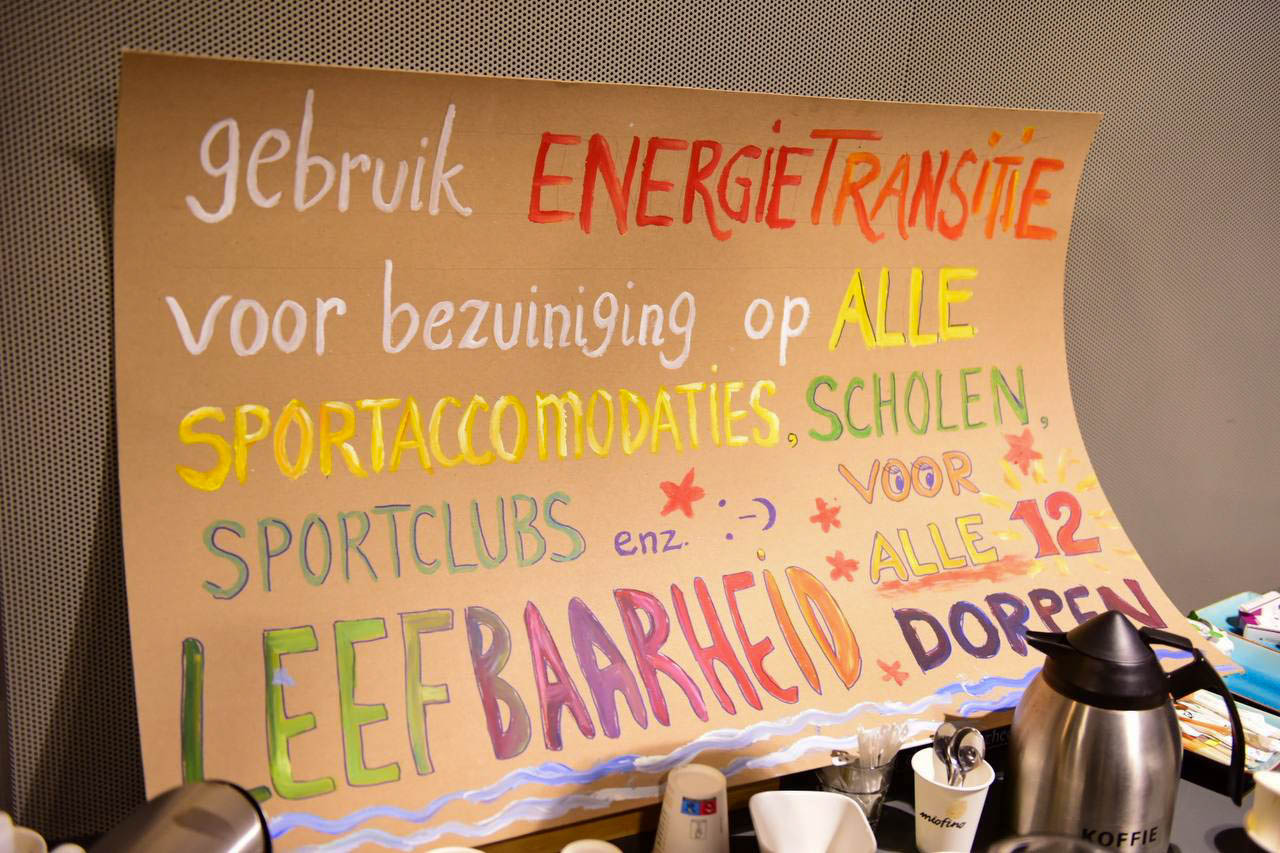 gebruik ENERGIETRANSITIE
voor bezuiniging op ALLE
SPORTACCOMODATIES, SCHOLEN,
SPORTCLUBS enz. :-)
VOOR
ALLE 12
DORPEN
LEEFBAARHEID
miofino
KOFFIE